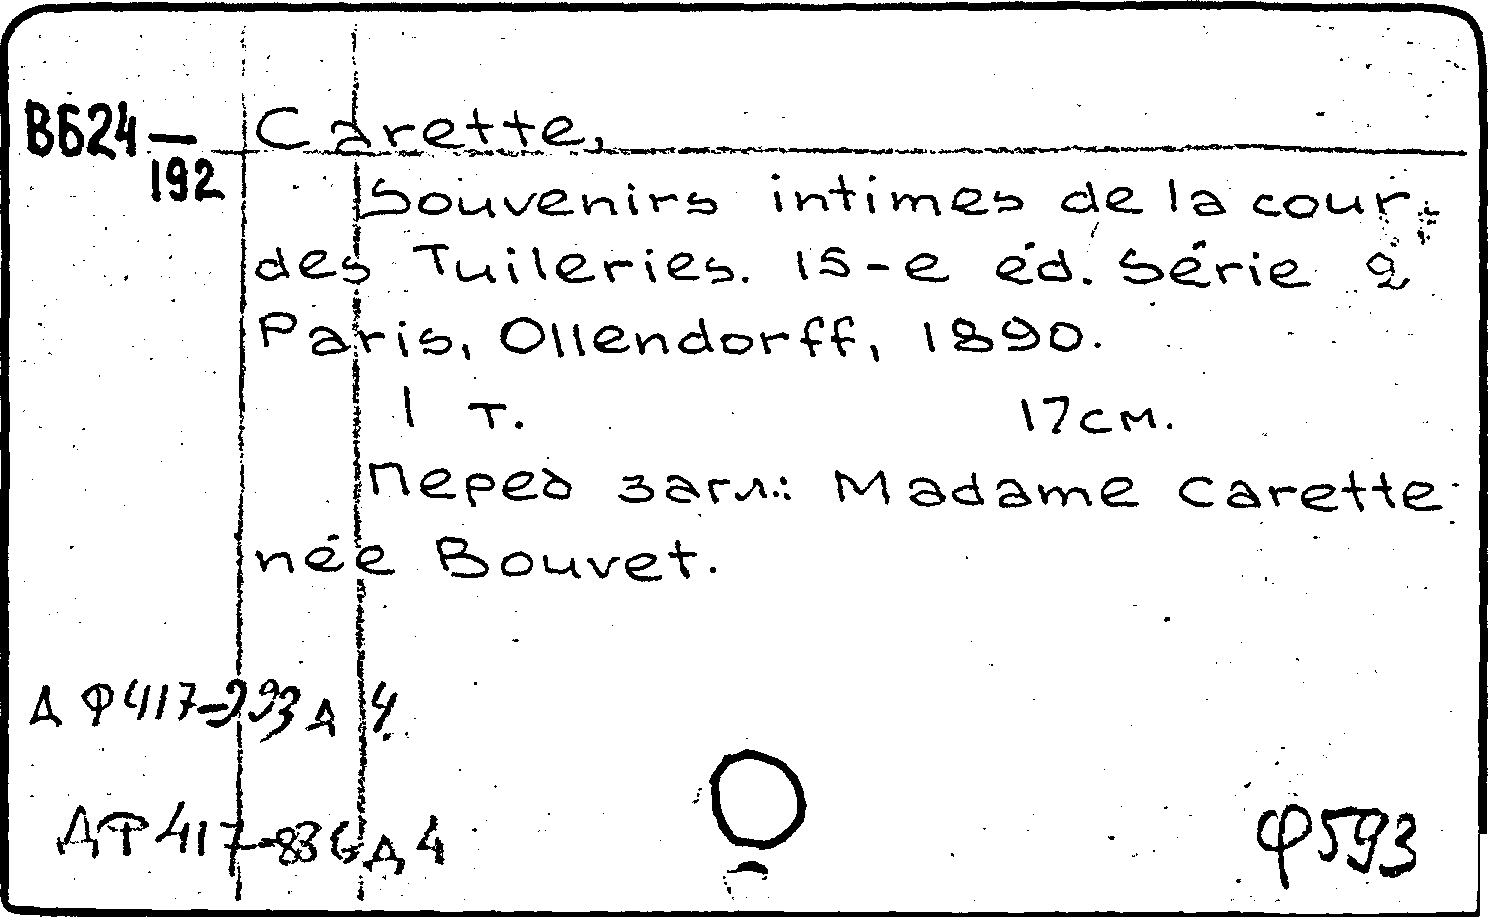 В624—192
Carette,
Souvenirs intimes de la cour
des Tuileries. 15-e éd. Série 2
Paris, Ollendorff, 1890.
1 т. 17см.
Перед загл.: Madame Carette
née Bouvet.
ДФ417-836Д4
Ф593